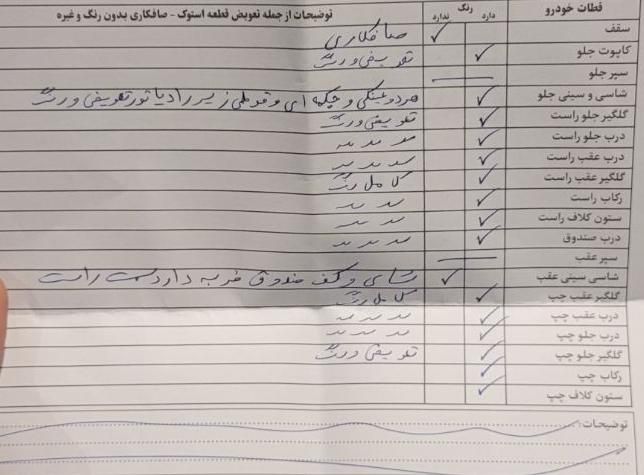 قطعات خودرو رنگ دارد ندارد توضیحات از جمله تعویض قطعه استوک - صافکاری بدون رنگ و غیره
سقف ✓ صافکاری
کاپوت جلو ✓ تعویض و رنگ
سپر جلو —
شاسی و سینی جلو ✓ هر دو عینکی و چکمه ای و قوطی زیر رادیاتور تعویض و رنگ
گلگیر جلو راست ✓ تعویض و رنگ
درب جلو راست ✓ 〃 〃 〃
درب عقب راست ✓ 〃 〃 〃
گلگیر عقب راست ✓ کامل رنگ
رکاب راست ✓ 〃 〃
ستون کلاف راست ✓ 〃 〃
درب صندوق ✓ 〃 〃 〃
سپر عقب —
شاسی سینی عقب ✓ شاسی و کف صندوق ضربه دارد سمت راست
گلگیر عقب چپ ✓ کامل رنگ
درب عقب چپ ✓ 〃 〃 〃
درب جلو چپ ✓ 〃 〃 〃
گلگیر جلو چپ ✓ تعویض و رنگ
رکاب چپ ✓
ستون کلاف چپ ✓
توضیحات: